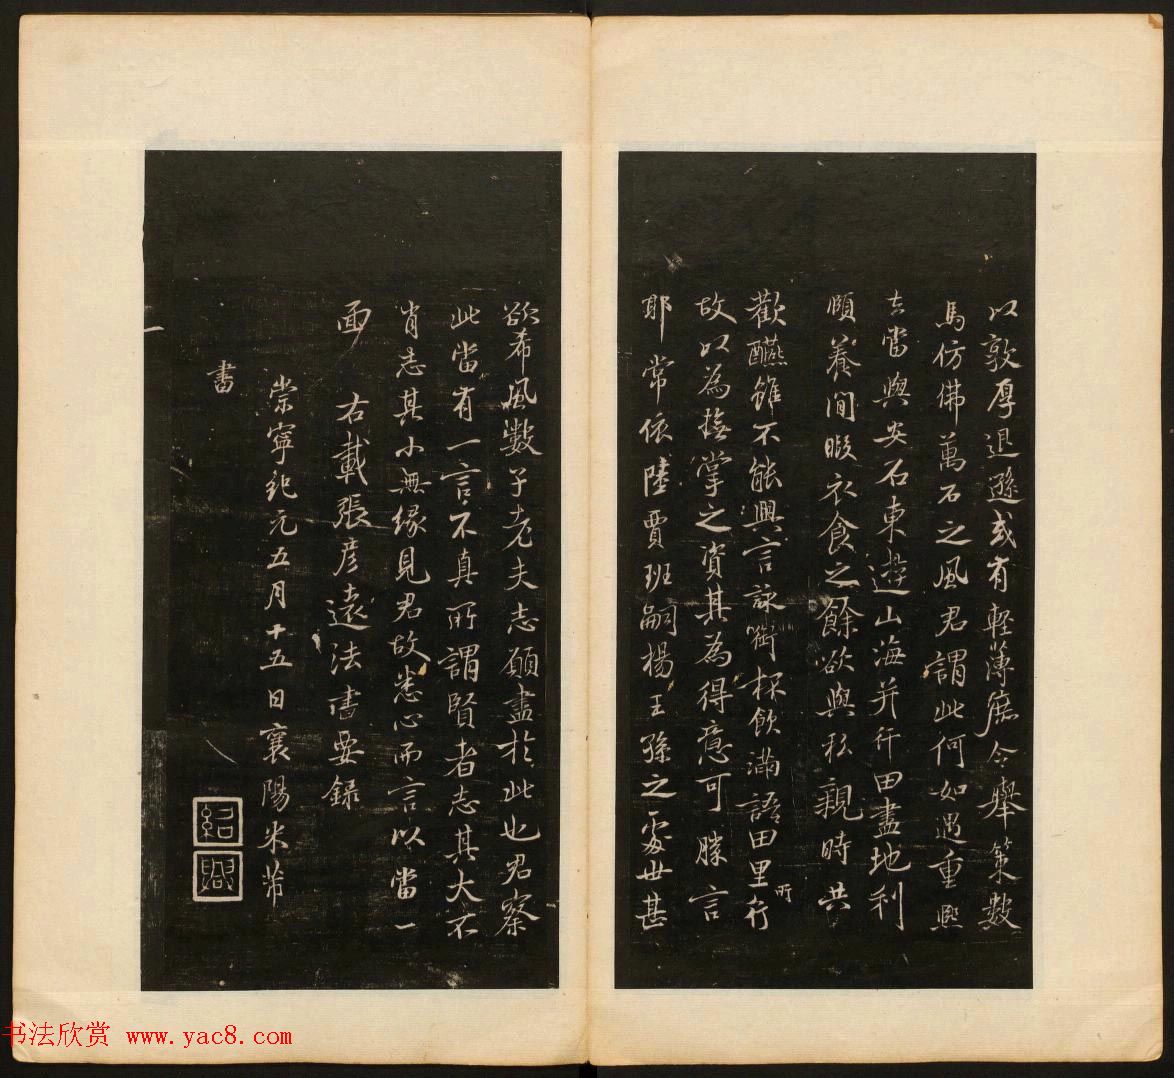 以敦厚退遜或有輕薄庶令舉策數
馬仿佛萬石之風君謂此何如遇重熙
去當與安石東遊山海并行田盡地利
頤養閒暇衣食之餘欲與親親時共
歡醼雖不能興言詠銜杯飲滿語田里所行
故以為撫掌之資其為得意可勝言
耶常依陸賈班嗣楊王孫之處世甚
欲希風數子老夫志願盡於此也君察
此當有一言不真所謂賢者志其大不
肖志其小無緣見君故悉心而言以當一
面 右載張彦遠法書要録
崇寧紀元五月十五日襄陽米芾
書
紹興
书法欣赏 www.yac8.com